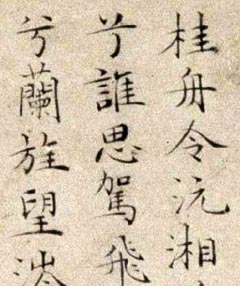 桂舟令沅湘
兮誰思駕飛
兮蘭旌望涔